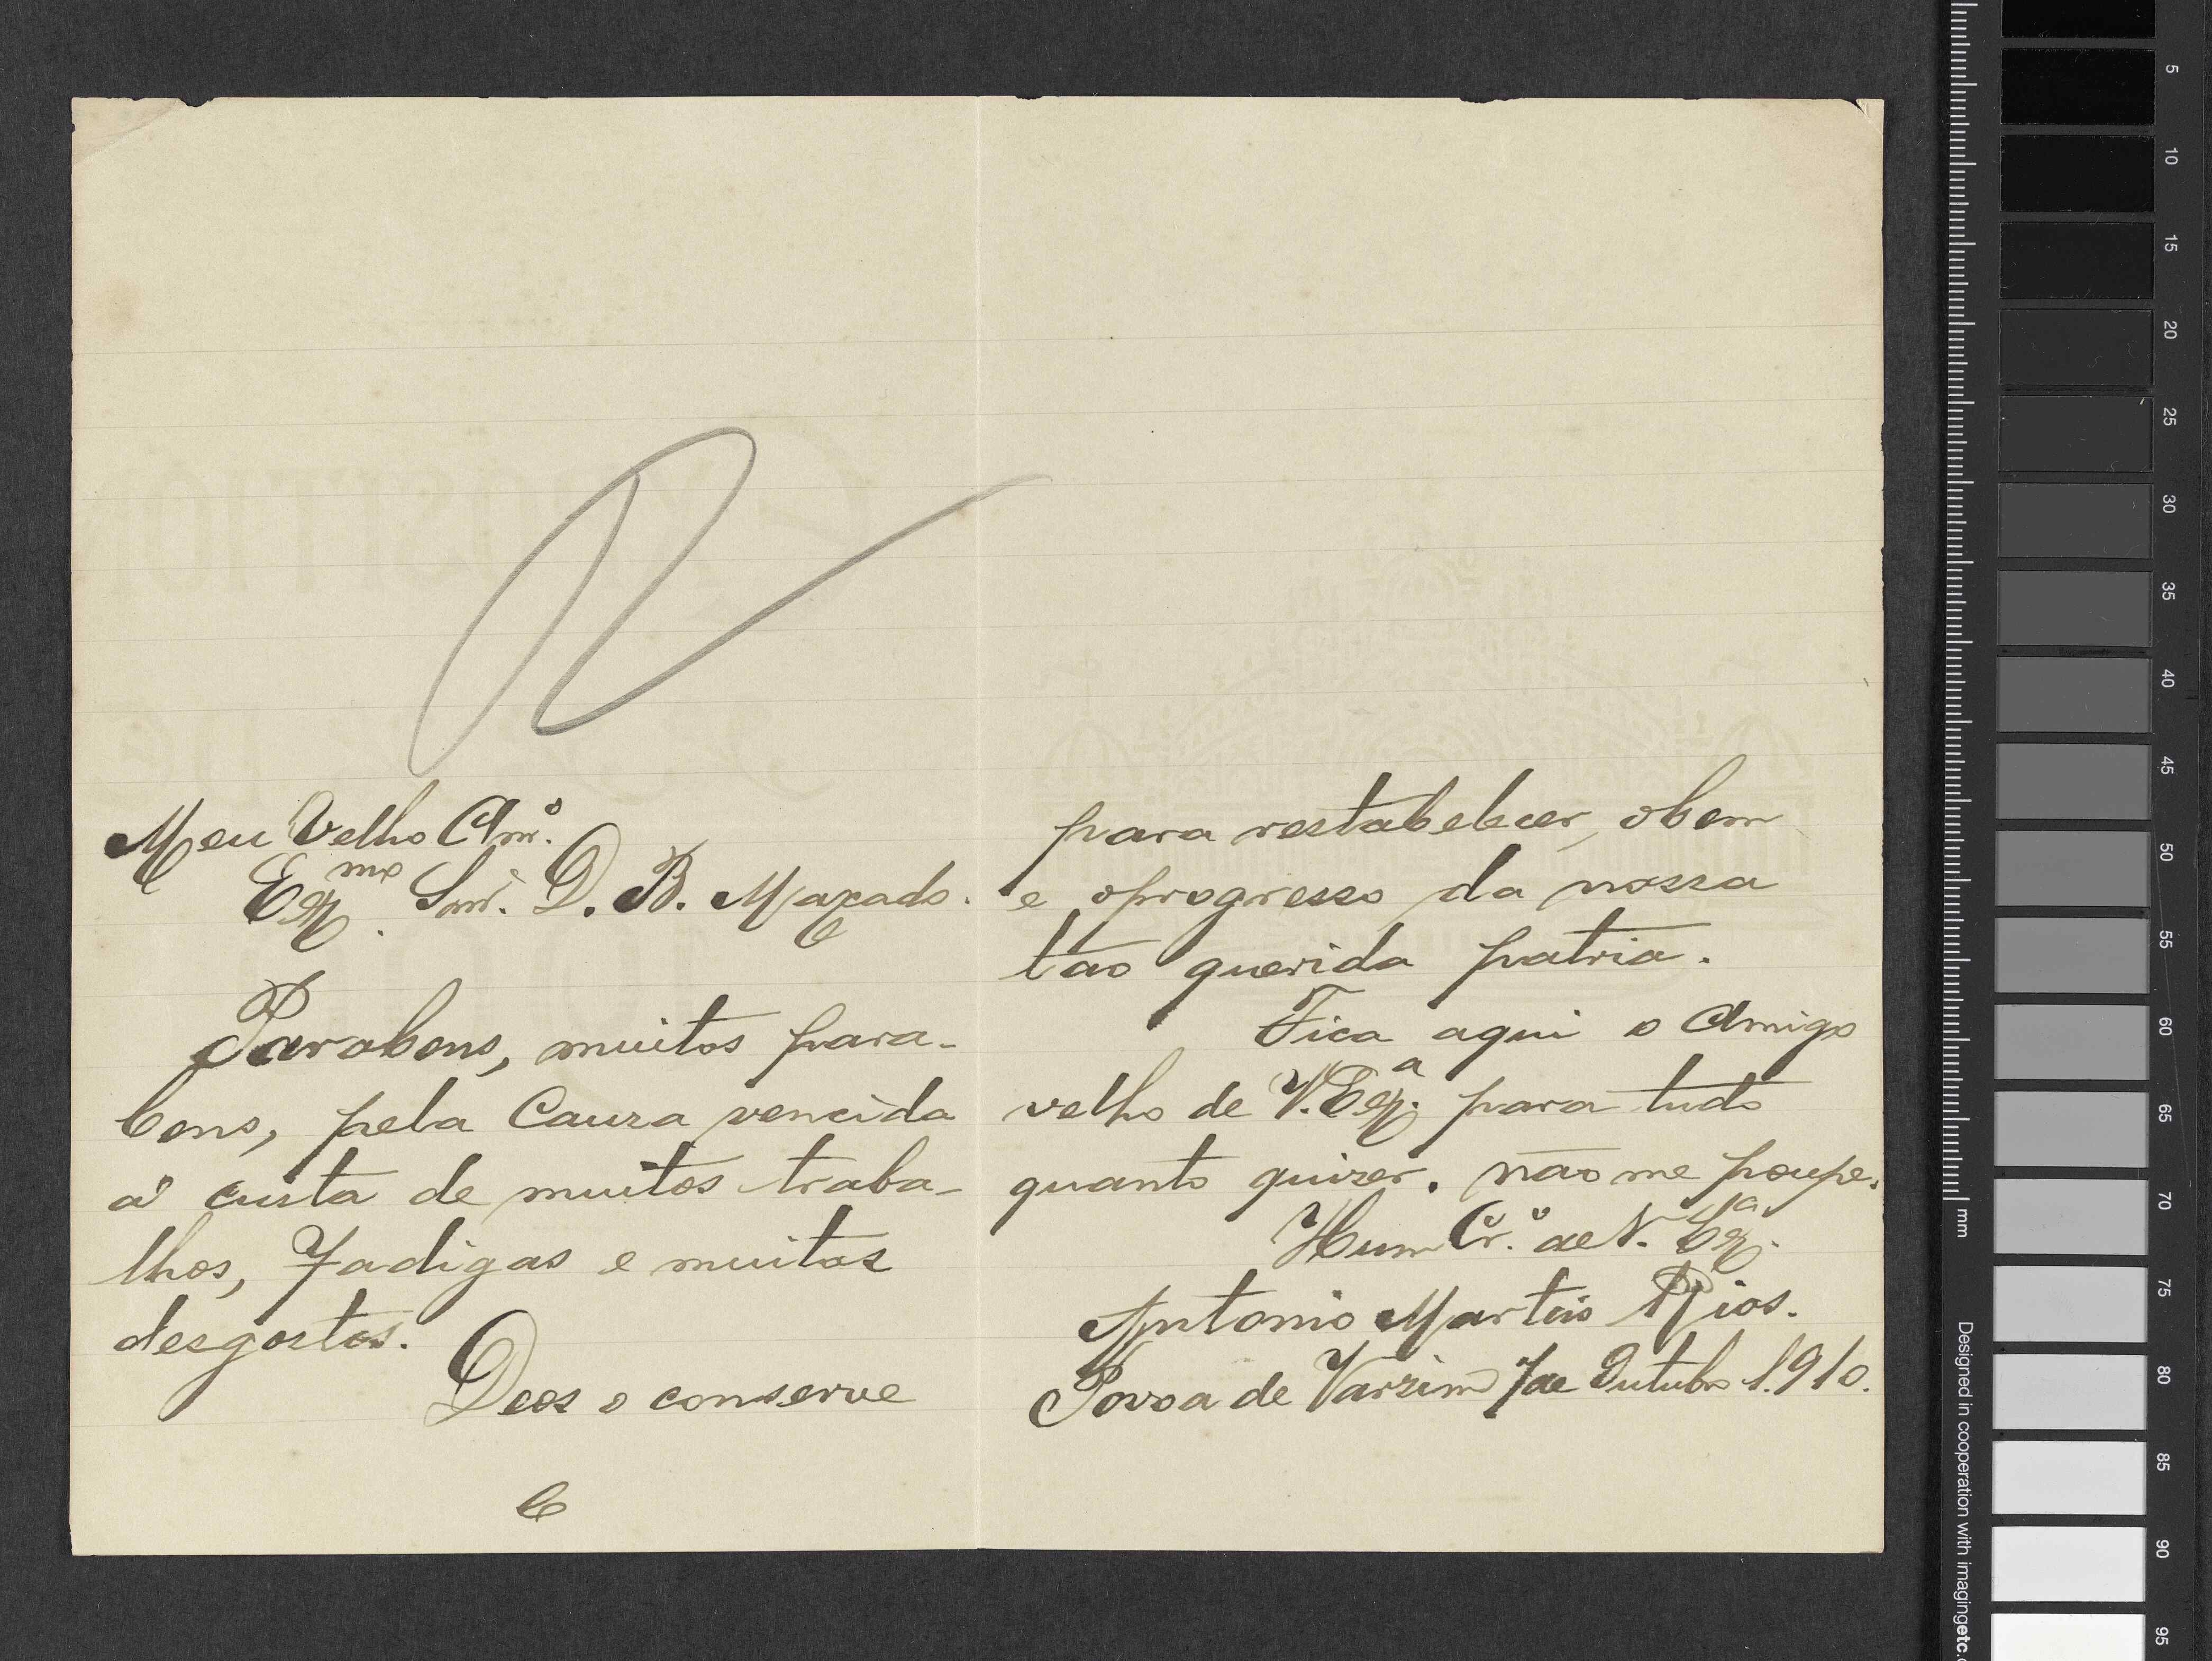 Meu Velho Amº.
Exmo. Snr. D. B. Maxado.
Parabens, muitos para-
bens, pela Causa vencida
á custa de muitos traba-
lhos, fadigas e muitos
desgostos.
Deos o conserve
para restabelecer, obem
e oprogresso da nossa
tão querida patria.
Fica aqui o Amigo
velho de V. Exª. para tudo
quanto quizer. não me poupe.
Hum Crº. de V. Exª.
Antonio Martins Rios.
Povoa de Varzim 7 de Outubro 1.910.
5
10
15
20
25
30
35
40
45
50
55
60
65
70
75
80
85
90
95
mm
Designed in cooperation with imagingetc.